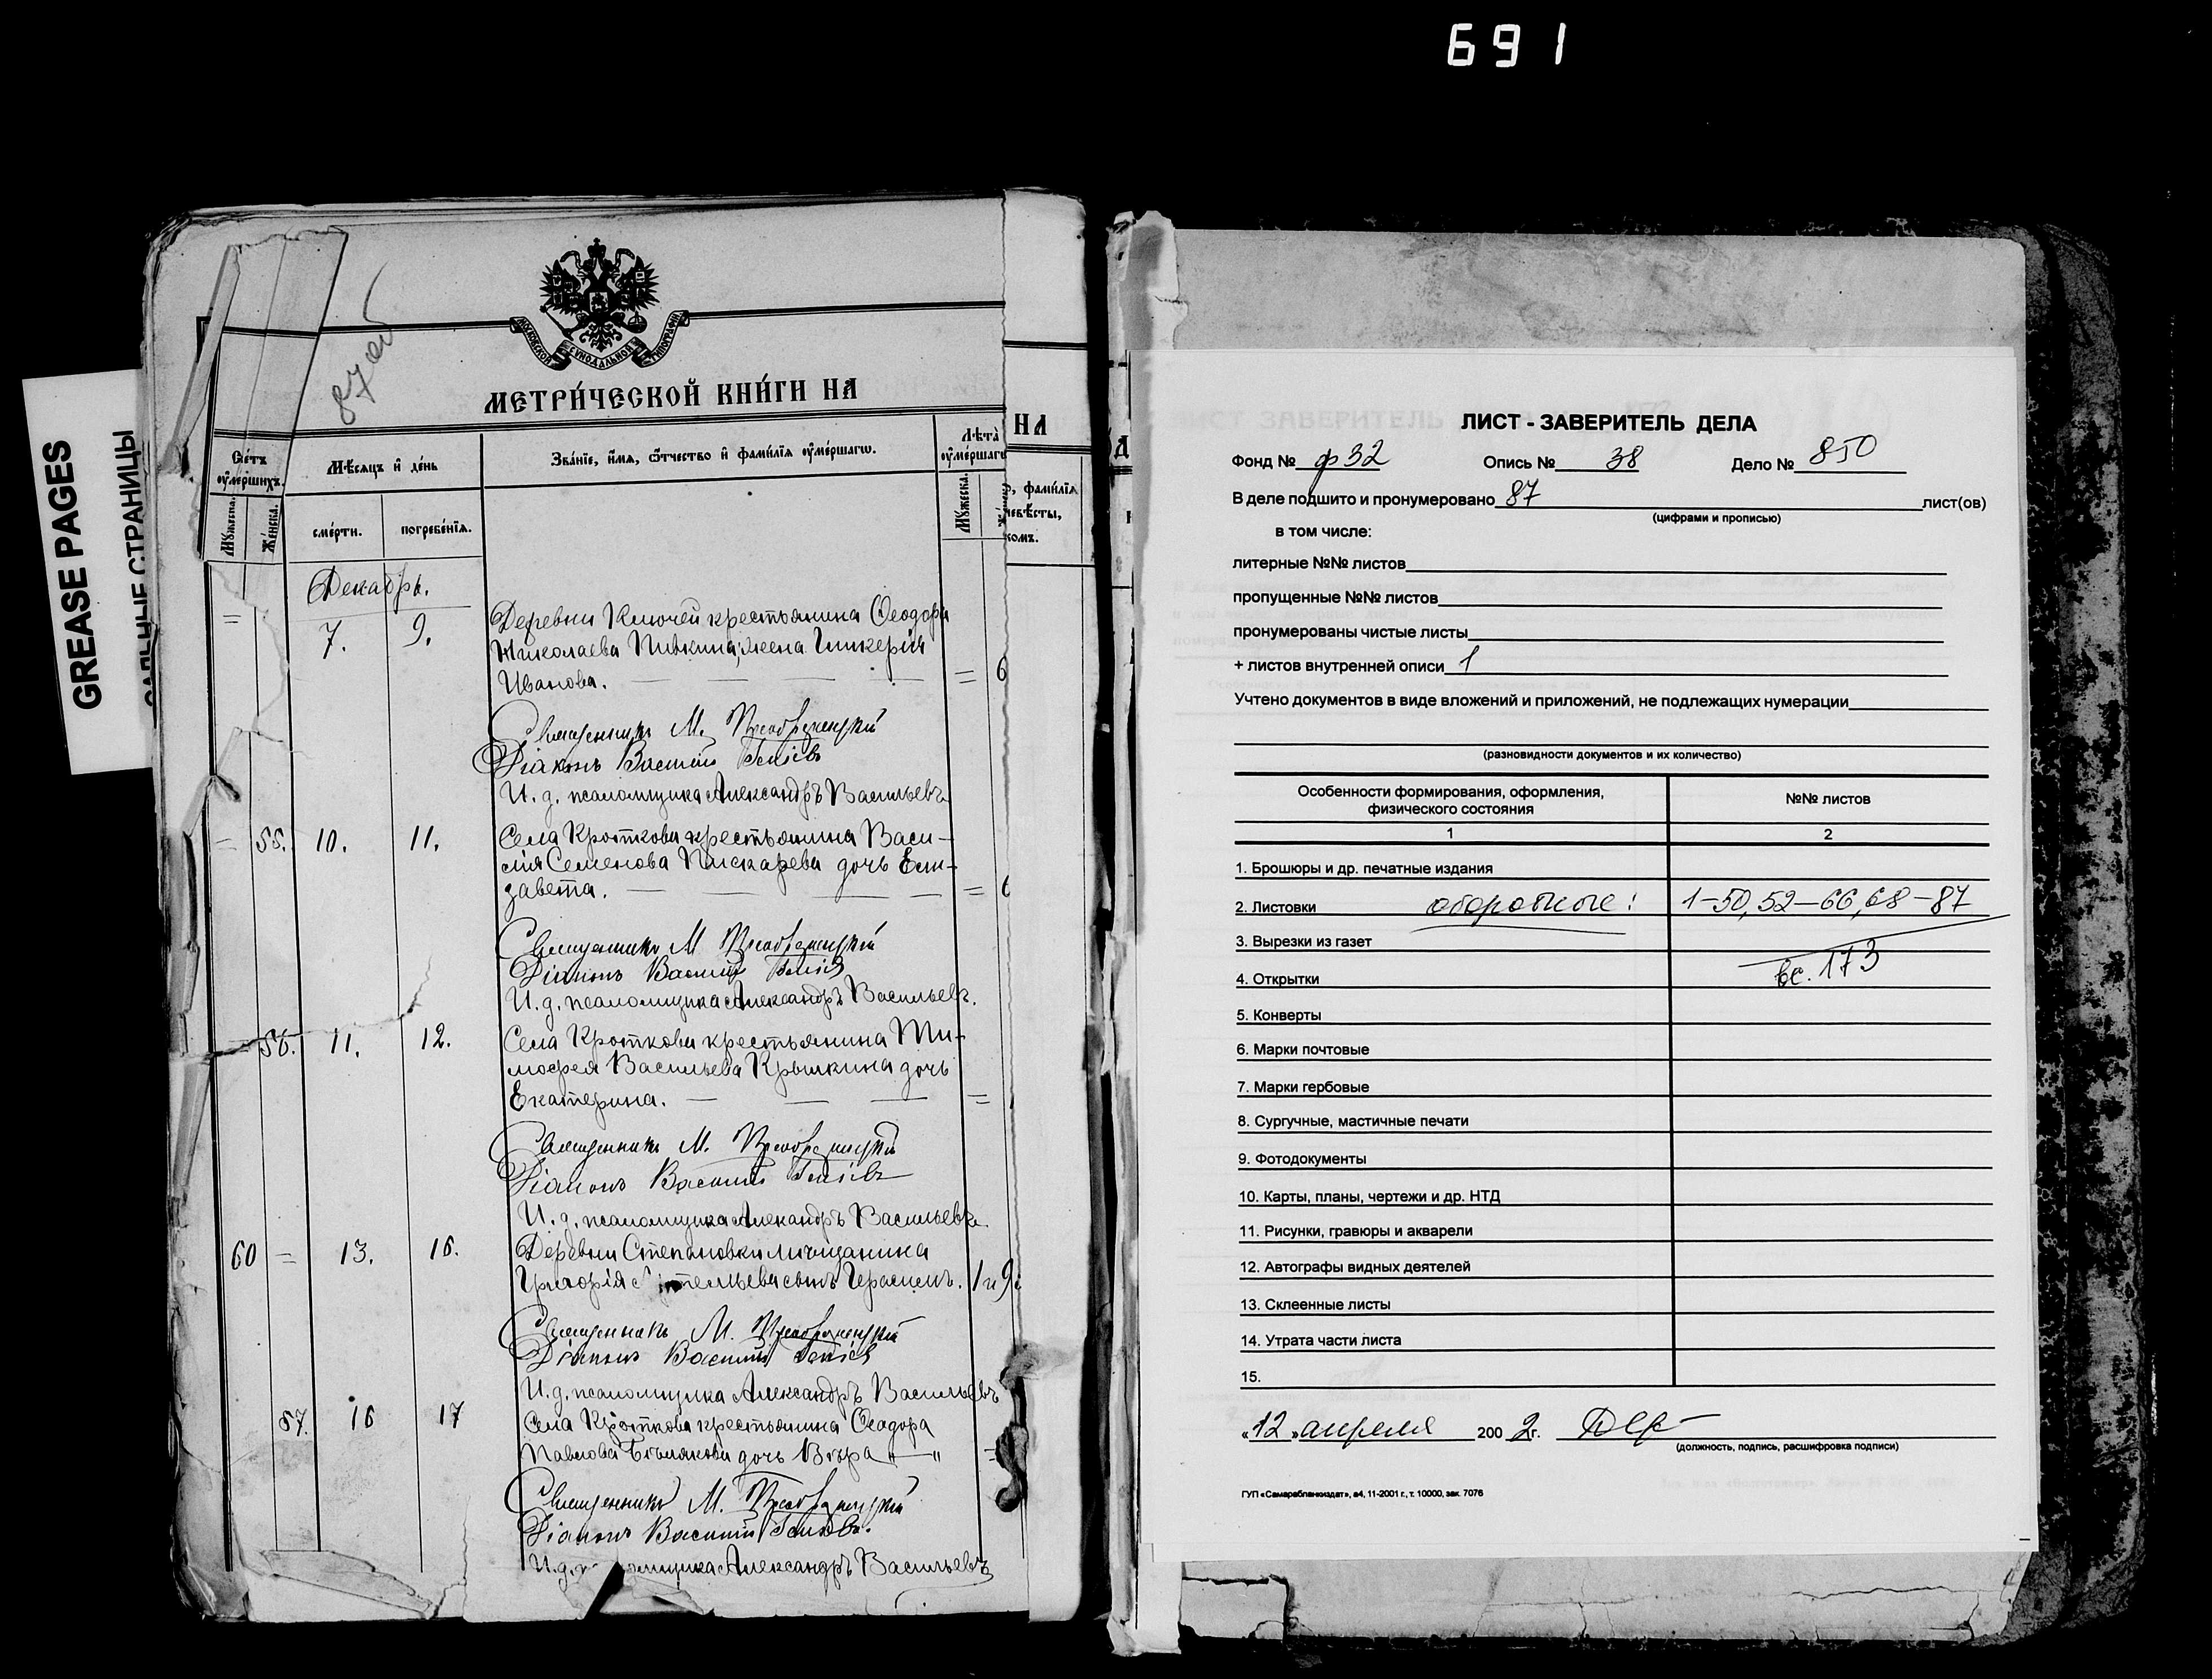 691
GREASE PAGES
САЛЬНЫЕ СТРАНИЦЫ
87 об
МОСКОВСКОЙ СѴНОДАЛЬНОЙ ТИПОГРАФІИ
МЕТРИ́ЧЕСКОЙ КНИ́ГИ НА
Сче́тъ ᲂу҆ме́ршихъ.
Мѣ́сяцъ и҆ де́нь
Зва́нїе, и҆́мя, ѻ҆́тчество и҆ фами́лїя ᲂу҆ме́ршагѡ.
Лѣта̀ ᲂу҆ме́ршагѡ
Мꙋ́жеска.
Же́нска.
сме́рти.
погребе́нїя.
Мꙋ́жеска.
Декабрь.
=
7.
9.
Деревни Ключей крестьянина Ѳеодора
Николаева жена Гликерія
Иванова. — — — — = 6
Священникъ М. Преображенскій
Діаконъ Василій
И. д. псаломщика Александръ Васильевъ
= 55. 10. 11. Села Кроткова крестьянина Васи-
лія Семенова Пискарева дочь Ели-
завета. — — — — = 6
Священникъ М. Преображенскій
Діаконъ Василій
И. д. псаломщика Александръ Васильевъ.
56. 11. 12. Села Кроткова крестьянина Ти-
мофея Васильева Крылкина дочь
Екатерина. — — — =
Священникъ М. Преображенскій
Діаконъ Василій
И. д. псаломщика Алекандръ Васильевъ
60 = 13. 16. Деревни Степановки мѣщанина
Григорія сынъ Герасимъ. 1 и 9
Священникъ М. Преображенскій
Діаконъ Василій
И. д. псаломщика Александръ Васильевъ
57. 16 17 Села Кроткова крестьянина Ѳеодора
Павлова Бѣлякова дочь Вѣра „—„ =
Священникъ М. Преображенскій
Діаконъ Василій
И. д. Александръ Васильевъ
НА
фами́лїя
невѣ́сты,
ЛИСТ - ЗАВЕРИТЕЛЬ ДЕЛА
Фонд № ф32 Опись № 38 Дело № 850
В деле подшито и пронумеровано 87 лист(ов)
(цифрами и прописью)
в том числе:
литерные №№ листов
пропущенные №№ листов
пронумерованы чистые листы
+ листов внутренней описи 1
Учтено документов в виде вложений и приложений, не подлежащих нумерации
(разновидности документов и их количество)
Особенности формирования, оформления, физического состояния
№№ листов
1 2
1. Брошюры и др. печатные издания
2. Листовки оборотные: 1-50, 52-66, 68-87
3. Вырезки из газет
4. Открытки вс. 173
5. Конверты
6. Марки почтовые
7. Марки гербовые
8. Сургучные, мастичные печати
9. Фотодокументы
10. Карты, планы, чертежи и др. НТД
11. Рисунки, гравюры и акварели
12. Автографы видных деятелей
13. Склеенные листы
14. Утрата части листа
15.
«12» апреля 2002г.
(должность, подпись, расшифровка подписи)
ГУП «Самарабланкиздат», а4, 11-2001 г., т. 10000, зак. 7076